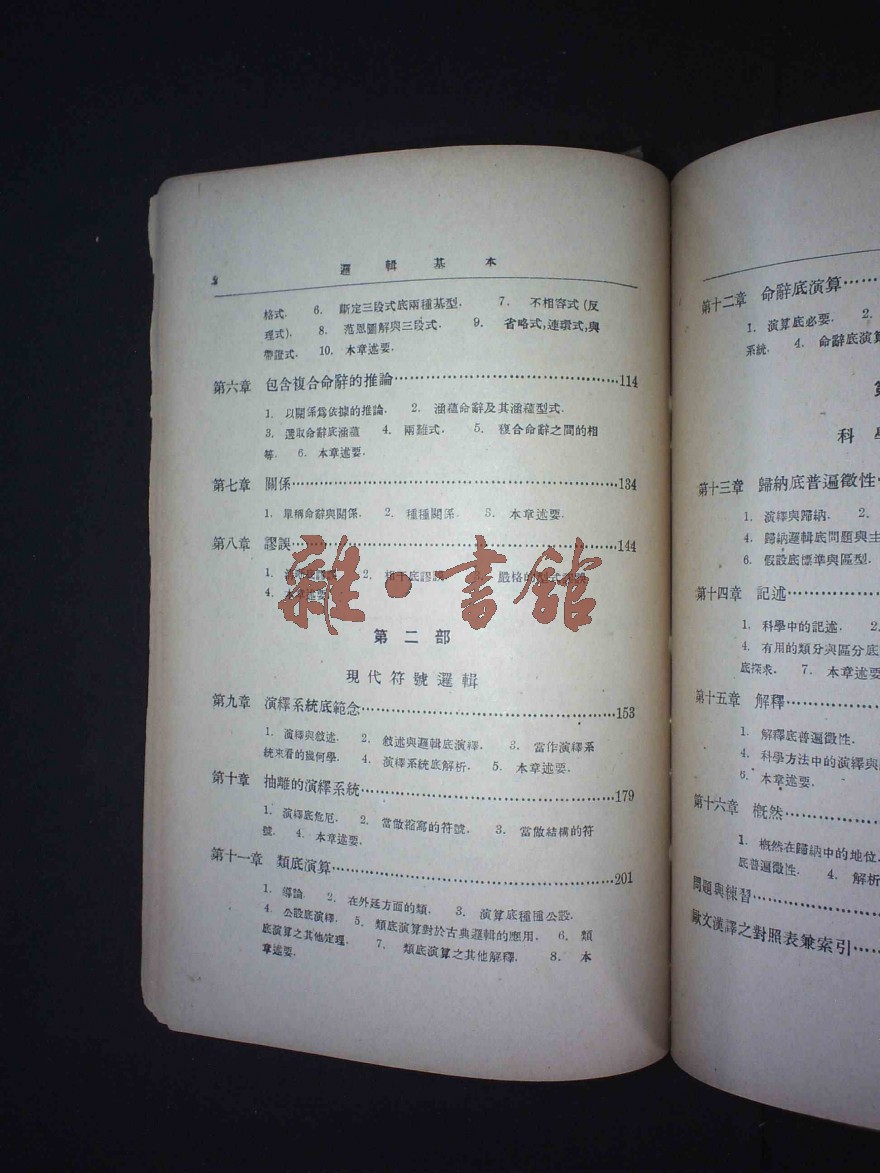 2
邏輯基本
格式. 6. 斷定三段式底兩種基型. 7. 不相容式(反
理式). 8. 范恩圖解與三段式. 9. 省略式,連環式,與
帶證式. 10. 本章述要.
第六章 包含複合命辭的推論……114
1. 以關係爲依據的推論. 2. 涵蘊命辭及其涵蘊型式.
3. 選取命辭底涵蘊 4. 兩難式. 5. 複合命辭之間的相
等. 6. 本章述要.
第七章 關係……134
1. 單稱命辭與關係. 2. 種種關係. 3. 本章述要.
第八章 謬誤……144
1. 2. 相干底謬誤 嚴格的
4. 本章述要.
雜·書舘
第二部
現代符號邏輯
第九章 演繹系統底範念……153
1. 演繹與敘述. 2. 敘述與邏輯底演繹. 3. 當作演繹系
統來看的幾何學. 4. 演繹系統底解析. 5. 本章述要.
第十章 抽離的演繹系統……179
1. 演繹底危厄. 2. 當做縮寫的符號. 3. 當做結構的符
號. 4. 本章述要.
第十一章 類底演算……201
1. 導論. 2. 在外延方面的類. 3. 演算底種種公設.
4. 公設底演繹. 5. 類底演算對於古典邏輯的應用. 6. 類
底演算之其他定理. 7. 類底演算之其他解釋. 8. 本
章述要.
第十二章 命辭底演算……
1. 演算底必要. 2.
系統. 4. 命辭底演算
科
第十三章 歸納底普遍徵性
1. 演繹與歸納. 2.
4. 歸納邏輯底問題與主
6. 假設底標準與區型.
第十四章 記述……
1. 科學中的記述. 2.
4. 有用的類分與區分底
底探求. 7. 本章述要
第十五章 解釋……
1. 解釋底普遍徵性.
4. 科學方法中的演繹與
6. 本章述要.
第十六章 概然……
1. 概然在歸納中的地位.
底普遍徵性. 4. 解析
問題與練習……
歐文漢譯之對照表兼索引……